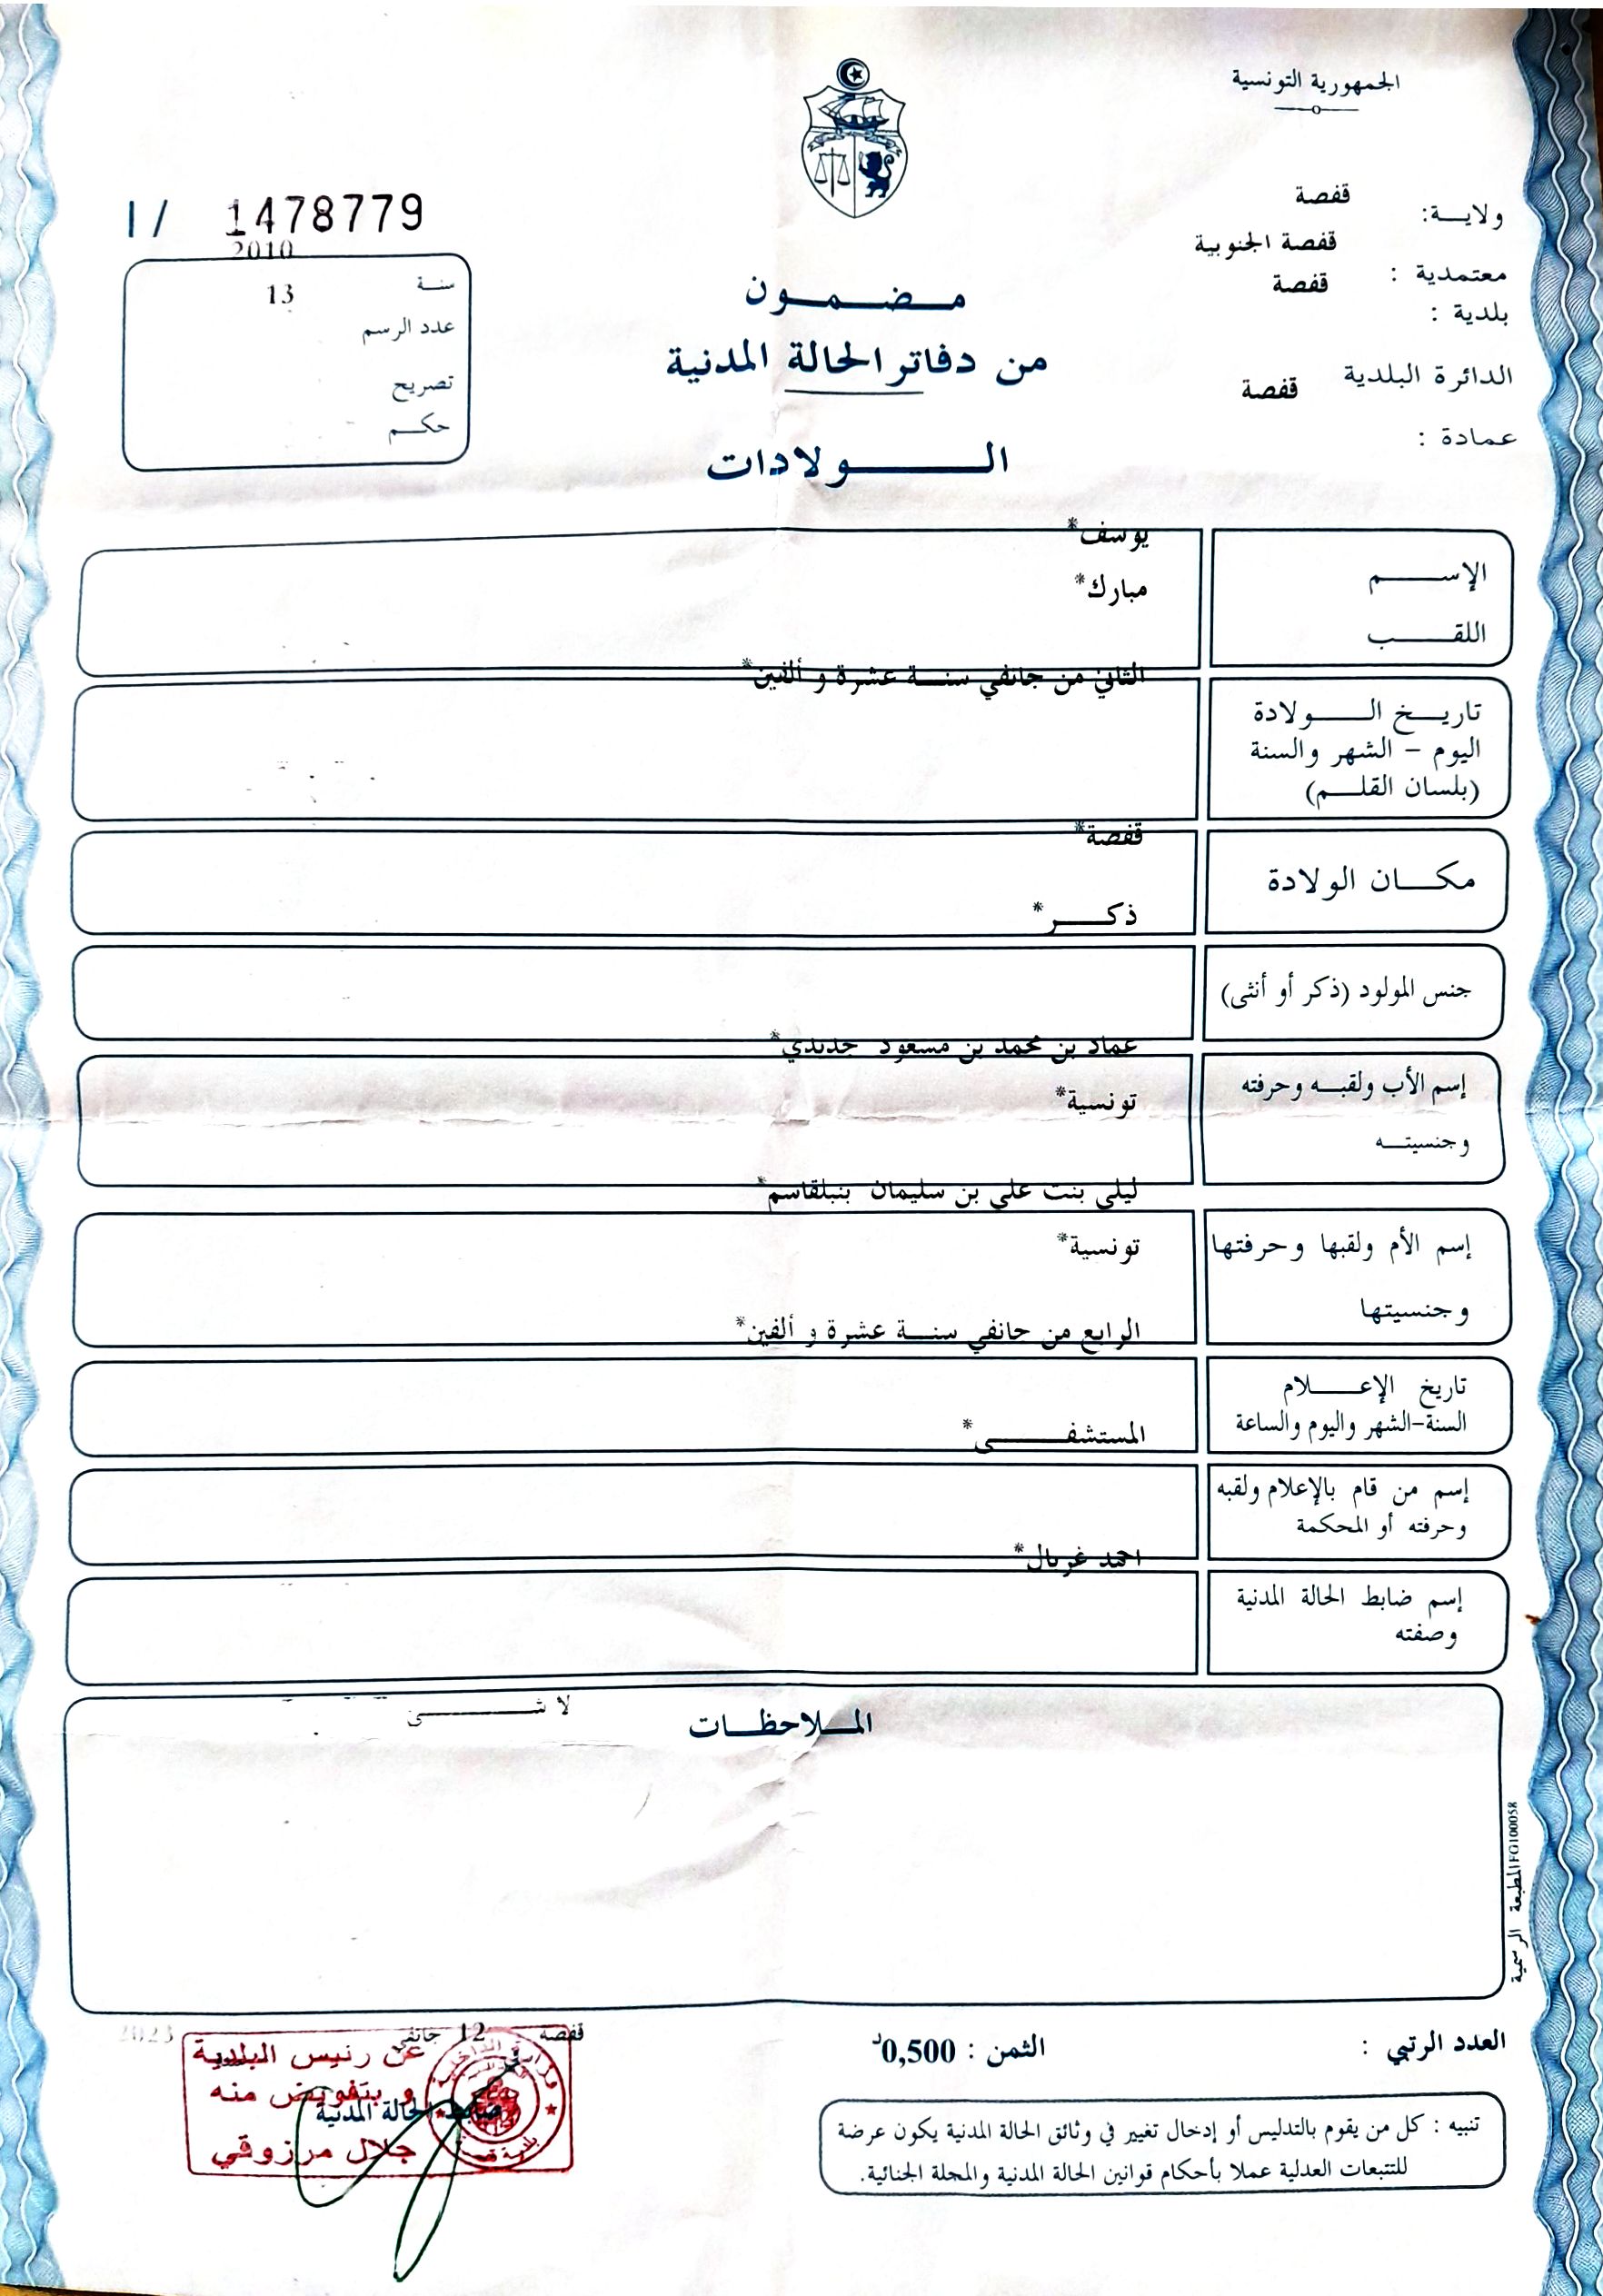 الجمهورية التونسية
ولايـــة: قفصة
معتمدية : قفصة الجنوبية
بلدية : قفصة
الدائرة البلدية قفصة
عمادة :
1478779 / I
2010
سنـة
13
عدد الرسم
تصريح
حكـــم
مـــضـــمـــون
من دفاتر الحالة المدنية
الـــــولادات
الإســـــم يوسف*
اللقـــــب مبارك*
تاريـــخ الـــــولادة الثاني من جانفي سنـــة عشرة و ألفين*
اليوم – الشهر والسنة
(بلسان القلـــم)
مكـــان الولادة قفصة*
جنس المولود (ذكر أو أنثى) ذكـــــر*
إسم الأب ولقبـــه وحرفته عماد بن محمد بن مسعود جديدي*
وجنسيتـــه تونسية*
إسم الأم ولقبها وحرفتها ليلى بنت علي بن سليمان بنبلقاسم*
وجنسيتها تونسية*
تاريخ الإعـــــلام الرابع من جانفي سنـــة عشرة و ألفين*
السنة-الشهر واليوم والساعة
إسم من قام بالإعلام ولقبه المستشفـــــــى*
وحرفته أو المحكمة
إسم ضابط الحالة المدنية احمد غربال*
وصفته
الملاحظـــات
لا شـــــــى
المطبعة الرسمية IFG100058
العدد الرتبي :
الثمن : 0,500د
قفصة في 12 جانفي 2023
عن رئيس البلدية
و بتفويض منه
ضابط الحالة المدنية
جلال مرزوقي
وزارة الداخلية
بلدية قفصة
تنبيه : كل من يقوم بالتدليس أو إدخال تغيير في وثائق الحالة المدنية يكون عرضة
للتتبعات العدلية عملا بأحكام قوانين الحالة المدنية والمجلة الجنائية.